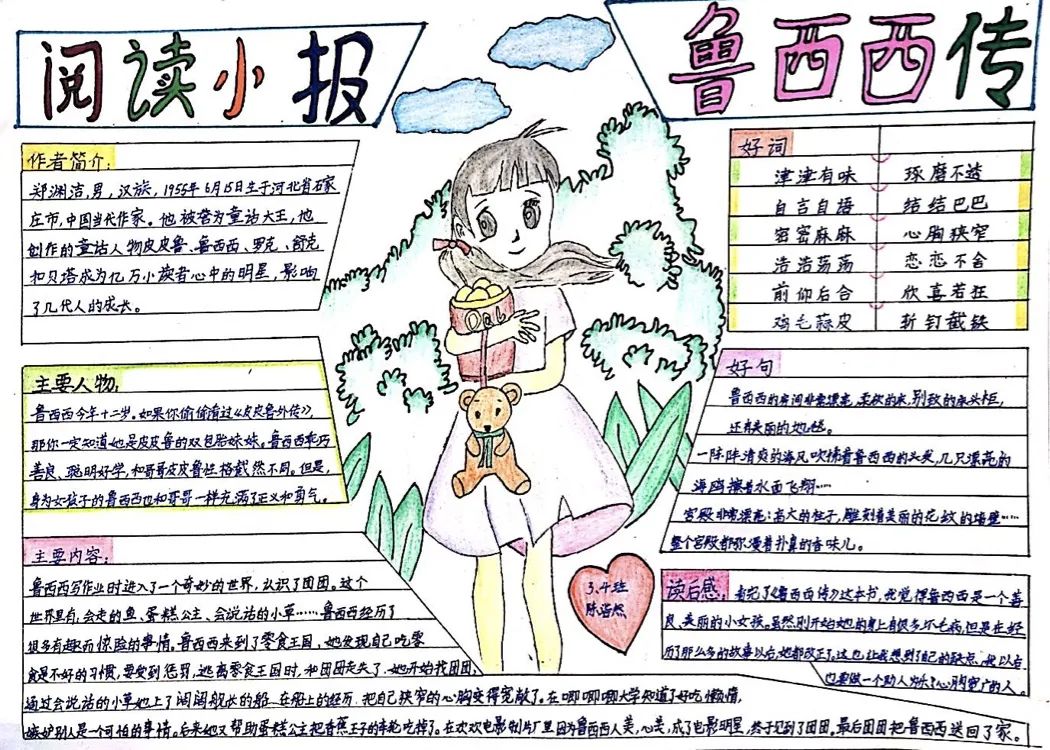 阅读小报
鲁西西传
作者简介:
郑渊洁,男,汉族,1955年6月15日生于河北省石家
庄市,中国当代作家。他被誉为童话大王,他
创作的童话人物皮皮鲁、鲁西西、罗克、舒克
和贝塔成为亿万小读者心中的明星,影响
了几代人的成长。
主要人物:
鲁西西今年十二岁。如果你偷偷看过《皮皮鲁外传》,
那你一定知道她是皮皮鲁的双包胎妹妹。鲁西西乖巧
善良、聪明好学,和哥哥皮皮鲁性格截然不同。但是,
身为女孩子的鲁西西也和哥哥一样充满了正义和勇气。
主要内容:
鲁西西写作业时进入了一个奇妙的世界,认识了团团。这个
世界里有,会走的鱼、蛋糕公主、会说话的小草……鲁西西经历了
很多有趣而惊险的事情。鲁西西来到了零食王国,她发现自己吃零
食是不好的习惯,要受到惩罚,逃离零食王国时,和团团走失了,她开始找团团,
通过会说话的小草她上了闹闹舰长的船,在船上的经历,把自己狭窄的心胸变得宽敞了。在唧唧唧大学知道了好吃懒惰,
嫉妒别人是一个可怕的事情。后来她又帮助蛋糕公主把香蕉王子的车轮吃掉了。在欢欢电影制片厂里因为鲁西西人美,心美,成了电影明星,终于见到了团团。最后团团把鲁西西送回了家。
Oab
3.4班
陈浩然
好词
津津有味 琢磨不透
自言自语 结结巴巴
密密麻麻 心胸狭窄
浩浩荡荡 恋恋不舍
前仰后合 欣喜若狂
鸡毛蒜皮 斩钉截铁
好句
鲁西西的房间非常漂亮,柔软的床,别致的床头柜,
还有美丽的地毯。
一阵阵清爽的海风吹拂着鲁西西的头发,几只漂亮的
海鸥擦着水面飞翔……
宫殿非常漂亮:高大的柱子,雕刻着美丽的花纹的墙壁……
整个宫殿都弥漫着扑鼻的香味儿。
读后感:看完了《鲁西西传》这本书,我觉得鲁西西是一个善
良、美丽的小女孩。虽然刚开始她的身上有很多坏毛病,但是在经
历了那么多的故事以后,她都改正了。这也让我想到了自己的缺点,我以后
也要做一个助人为乐、心胸宽广的人。